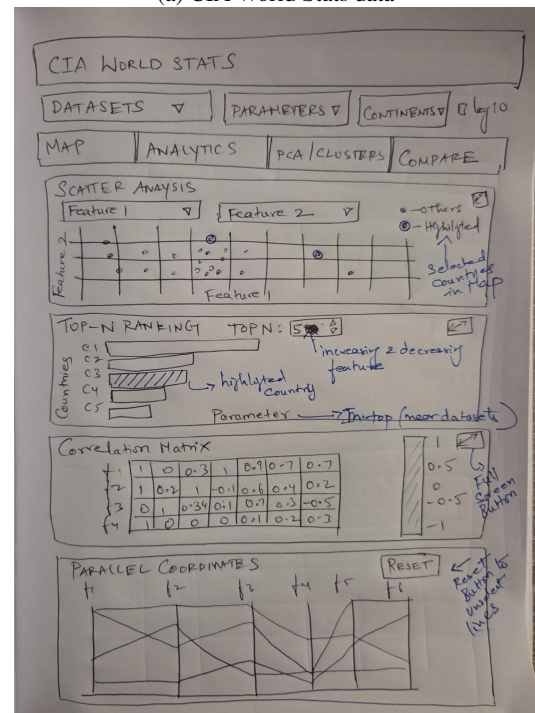 (a) CIA World Stats data
CIA WORLD STATS
DATASETS PARAMETERS CONTINENTS log10
MAP ANALYTICS PCA/CLUSTERS COMPARE
SCATTER ANAYSIS
Feature 1 Feature 2
- others
- Highlighted
Selected
countries
in Map
Feature 2
Feature 1
TOP-N RANKING TOP N: 5
increasing & decreasing
feature
Countries
C1
C2
C3
C4
C5
highlyted
country
Parameter In top (near datasets)
Correlation Matrix
f1 1 0 0.3 1 0.9 0.7 0.7
f2 1 0.2 1 -0.1 0.6 0.4 0.2
f3 0 1 0.34 0.1 0.7 0.3 -0.5
f4 1 0 0 0 0.1 0.2 0.3
1
0.5
0
-0.5
-1
Full
Screen
Button
PARALLEL COORDINATES RESET
Reset
Button to
unselect
lines
f1 f2 f3 f4 f5 f6